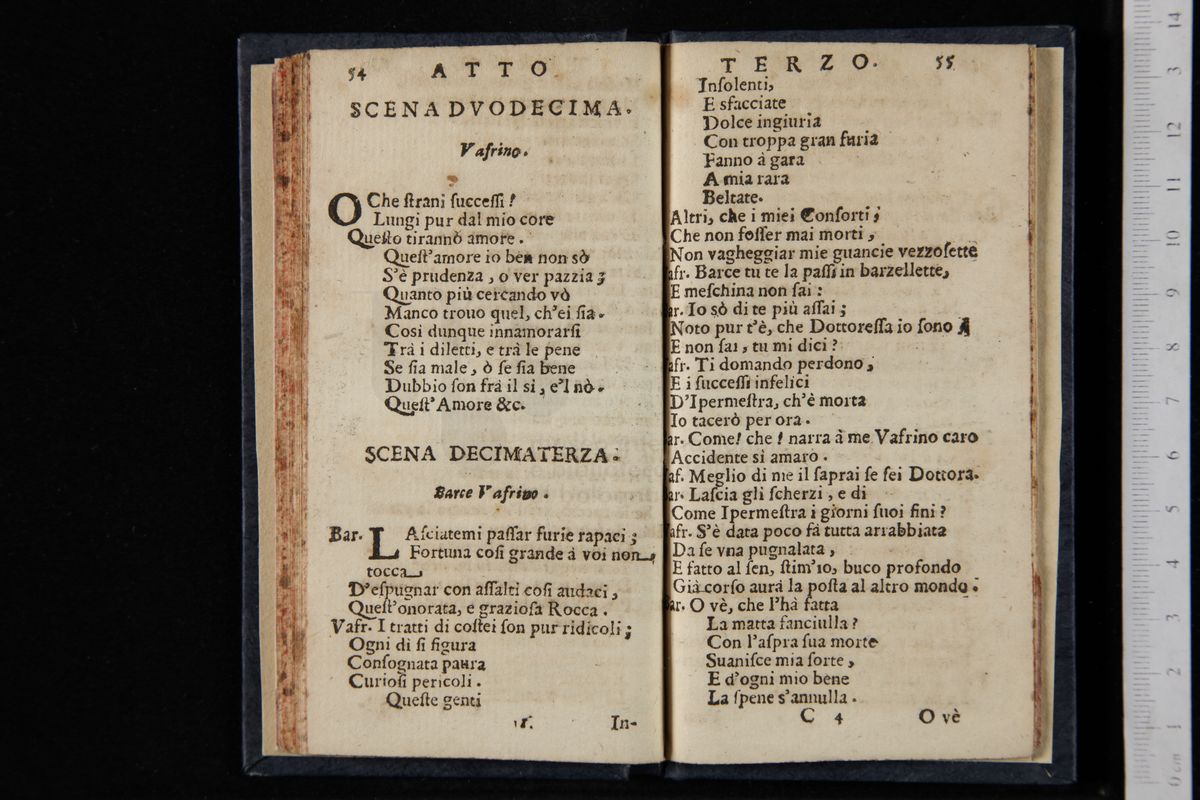 54 ATTO
SCENA DVODECIMA.
Vafrino.
O Che ſtrani ſucceſſi!
Lungi pur dal mio core
Queſto tirannò amore.
Queſt'amore io ben non sò
S'è prudenza, o ver pazzia;
Quanto più cercando vò
Manco trouo quel, ch'ei ſia.
Cosi dunque innamorarſi
Trà i diletti, e trà le pene
Se ſia male, ò ſe ſia bene
Dubbio ſon frà il si, e'l nò.
Queſt'Amore &c.
SCENA DECIMATERZA.
Barce Vafrino.
Bar. LAſciatemi paſſar furie rapaci;
Fortuna coſi grande à voi non
tocca
D'eſpugnar con aſſalti coſi audaci,
Queſt'onorata, e grazioſa Rocca.
Vafr. I tratti di coſtei ſon pur ridicoli;
Ogni di ſi figura
Conſognata paura
Curioſi pericoli.
Queſte genti
In-
TERZO. 55
Inſolenti,
E sfacciate
Dolce ingiuria
Con troppa gran furia
Fanno à gara
A mia rara
Beltate.
Altri, che i miei Conſorti;
Che non foſſer mai morti,
Non vagheggiar mie guancie vezzoſette
afr. Barce tu te la paſſi in barzellette,
E meſchina non ſai:
ar. Io sò di te più aſſai;
Noto pur t'è, che Dottoreſſa io ſono
E non ſai, tu mi dici?
afr. Ti domando perdono,
E i ſucceſſi infelici
D'Ipermeſtra, ch'è morta
Io tacerò per ora.
ar. Come! che! narra à me Vafrino caro
Accidente si amaro.
af. Meglio di me il ſaprai ſe ſei Dottora.
ar. Laſcia gli ſcherzi, e di
Come Ipermeſtra i giorni ſuoi fini?
afr. S'è data poco fà tutta arrabbiata
Da ſe vna pugnalata,
E fatto al ſen, ſtim'io, buco profondo
Già corſo aurà la poſta al altro mondo.
ar. O vè, che l'hà fatta
La matta fanciulla?
Con l'aſpra ſua morte
Suaniſce mia ſorte,
E d'ogni mio bene
La ſpene s'annulla.
C 4 O vè
14
3
12
11
10
9
8
7
6
5
4
3
2
1
0 cm